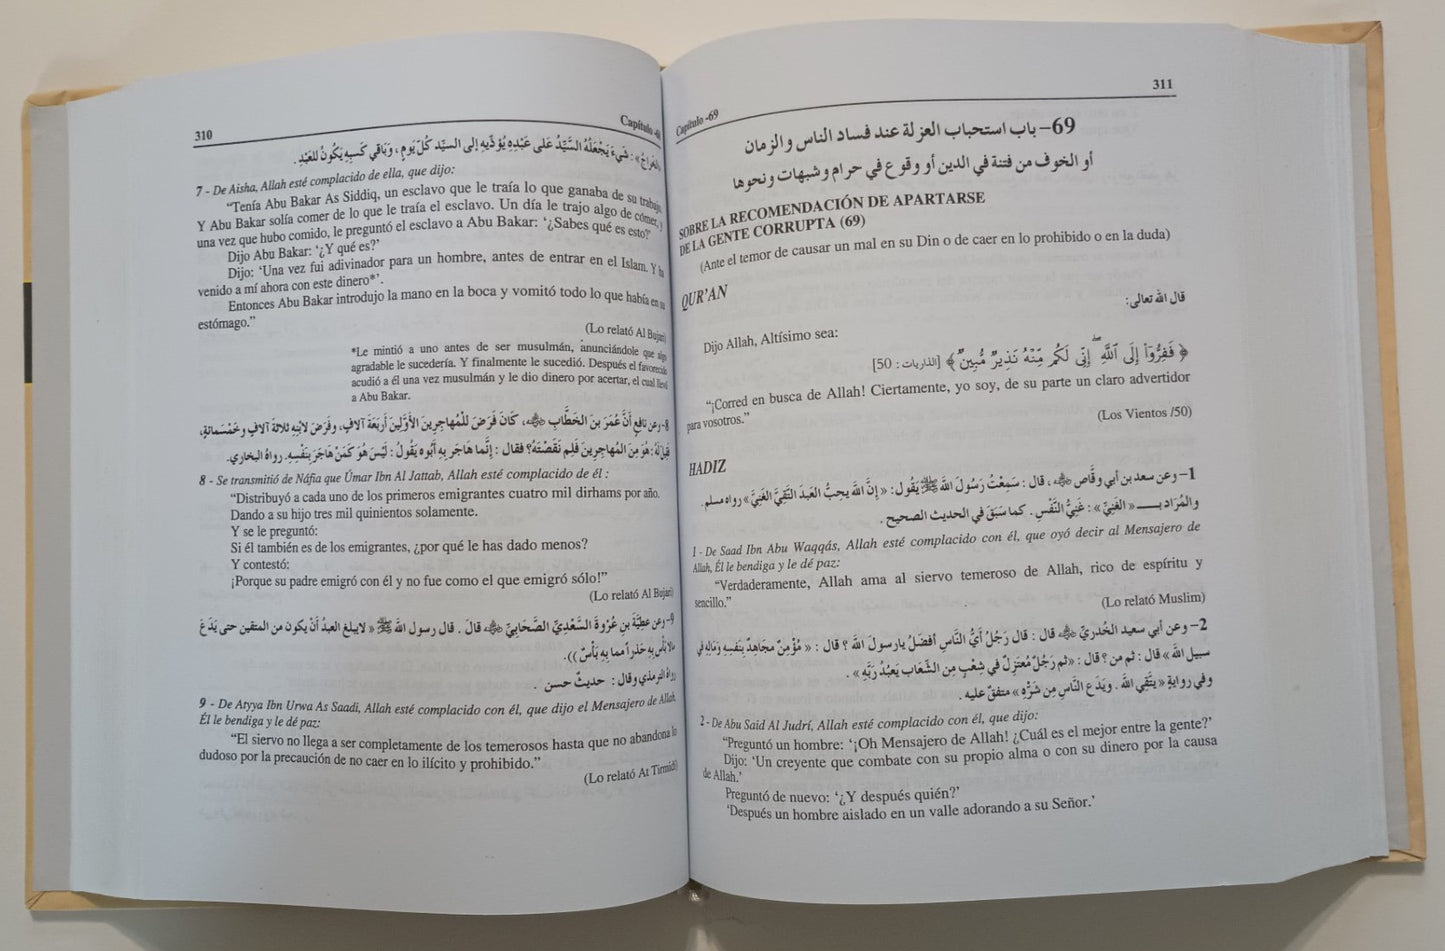 310
Capítulo
«الخراجُ»: شَيءٌ يَجْعَلُهُ السَّيِّدُ عَلى عَبْدِهِ يُؤدِّيهِ إلى السيِّد كُلَّ يَومٍ، وَبَاقي كَسبِهِ يَكُونُ للعَبْدِ.
7 - De Aisha, Allah esté complacido de ella, que dijo:
“Tenía Abu Bakar As Siddiq, un esclavo que le traía lo que ganaba de su trabajo.
Y Abu Bakar solía comer de lo que le traía el esclavo. Un día le trajo algo de comer, y
una vez que hubo comido, le preguntó el esclavo a Abu Bakar: ‘¿Sabes qué es esto?’
Dijo Abu Bakar: ‘¿Y qué es?’
Dijo: ‘Una vez fui adivinador para un hombre, antes de entrar en el Islam. Y ha
venido a mí ahora con este dinero*’.
Entonces Abu Bakar introdujo la mano en la boca y vomitó todo lo que había en su
estómago.”
(Lo relató Al Bujari)
*Le mintió a uno antes de ser musulmán, anunciándole que algo
agradable le sucedería. Y finalmente le sucedió. Después el favorecido
acudió a él una vez musulmán y le dio dinero por acertar, el cual llevó
a Abu Bakar.
8- وعن نافعٍ أنَّ عُمَرَ بنَ الخَطَّابِ ﷺ، كَانَ فَرَضَ للْمُهاجِرِينَ الأوَّلِينَ أربَعَةَ آلافٍ، وفَرَضَ لابْنِهِ ثلاثَةَ آلافٍ وخَمْسَمائةٍ،
فَقِيلَ لَهُ: هُوَ مِنَ المُهاجِرِينَ فَلِم نَقَصْتَهُ؟ فقال: إنَّما هَاجَر بِهِ أبُوه يَقُولُ: لَيْسَ هُوَ كَمَنْ هَاجَرَ بِنَفْسِهِ. رواهُ البخاري.
8 - Se transmitió de Náfia que Úmar Ibn Al Jattab, Allah esté complacido de él :
“Distribuyó a cada uno de los primeros emigrantes cuatro mil dirhams por año.
Dando a su hijo tres mil quinientos solamente.
Y se le preguntó:
Si él también es de los emigrantes, ¿por qué le has dado menos?
Y contestó:
¡Porque su padre emigró con él y no fue como el que emigró sólo!”
(Lo relató Al Bujari)
9- وعن عطِيَّةَ بنِ عُرْوةَ السَّعْدِيِّ الصَّحَابِيِّ قَالَ. قال رسول الله ﷺ «لايبلغ العبدُ أنْ يكون من المتقين حتى يَدَعَ
مالا بَأْس بِهِ حَذراً مما بِهِ بَأْسٌ».
رواهُ الترمذي وقال: حديثٌ حسن.
9 - De Atyya Ibn Urwa As Saadi, Allah esté complacido con él, que dijo el Mensajero de Allah,
Él le bendiga y le dé paz:
“El siervo no llega a ser completamente de los temerosos hasta que no abandona lo
dudoso por la precaución de no caer en lo ilícito y prohibido.”
(Lo relató At Tirmidi)
Capítulo -69
311
69- باب استحباب العزلة عند فساد الناس والزمان
أو الخوف من فتنة في الدين أو وقوع في حرام وشبهات ونحوها
SOBRE LA RECOMENDACIÓN DE APARTARSE
DE LA GENTE CORRUPTA (69)
(Ante el temor de causar un mal en su Din o de caer en lo prohibido o en la duda)
QUR’AN
قال الله تعالى:
Dijo Allah, Altísimo sea:
﴿ فَفِرُّوٓا۟ إِلَى ٱللَّهِ ۖ إِنِّى لَكُم مِّنْهُ نَذِيرٌ مُّبِينٌ ﴾ [الذاريات : 50]
“¡Corred en busca de Allah! Ciertamente, yo soy, de su parte un claro advertidor
para vosotros.”
(Los Vientos /50)
HADIZ
1- وعن سعد بن أبي وقَّاص، قال: سَمِعْتُ رَسُولَ اللهِ ﷺ يَقُول: «إنَّ الله يحِبُّ العَبدَ التَّقِيَّ الغَنِيَّ» رواه مسلم.
والمُرَاد بـ «الغَنِيِّ»: غَنِيُّ النَّفْسِ. كما سَبَقَ في الحديث الصحيح.
1 - De Saad Ibn Abu Waqqás, Allah esté complacido con él, que oyó decir al Mensajero de
Allah, Él le bendiga y le dé paz:
“Verdaderamente, Allah ama al siervo temeroso de Allah, rico de espíritu y
sencillo.”
(Lo relató Muslim)
2- وعن أبي سعيد الخُدريِّ قال: قال رَجُلٌ أيُّ النَّاسِ أفضَلُ يارسولَ اللهِ؟ قال: «مُؤْمِنٌ مجَاهِدٌ بِنَفسِهِ وَمَالِهِ في
سبيل الله» قال: ثم من؟ قال: «ثم رَجُلٌ مُعتَزِلٌ في شِعْبٍ مِن الشِّعَابِ يَعبُدُ رَبَّه».
وفي روايةٍ «يتَّقِي الله. ويَدَع النَّاسَ مِن شَرِّهِ» متفقٌ عليه.
2 - De Abu Said Al Judrí, Allah esté complacido con él, que dijo:
“Preguntó un hombre: ‘¡Oh Mensajero de Allah! ¿Cuál es el mejor entre la gente?’
Dijo: ‘Un creyente que combate con su propio alma o con su dinero por la causa
de Allah.’
Preguntó de nuevo: ‘¿Y después quién?’
‘Después un hombre aislado en un valle adorando a su Señor.’